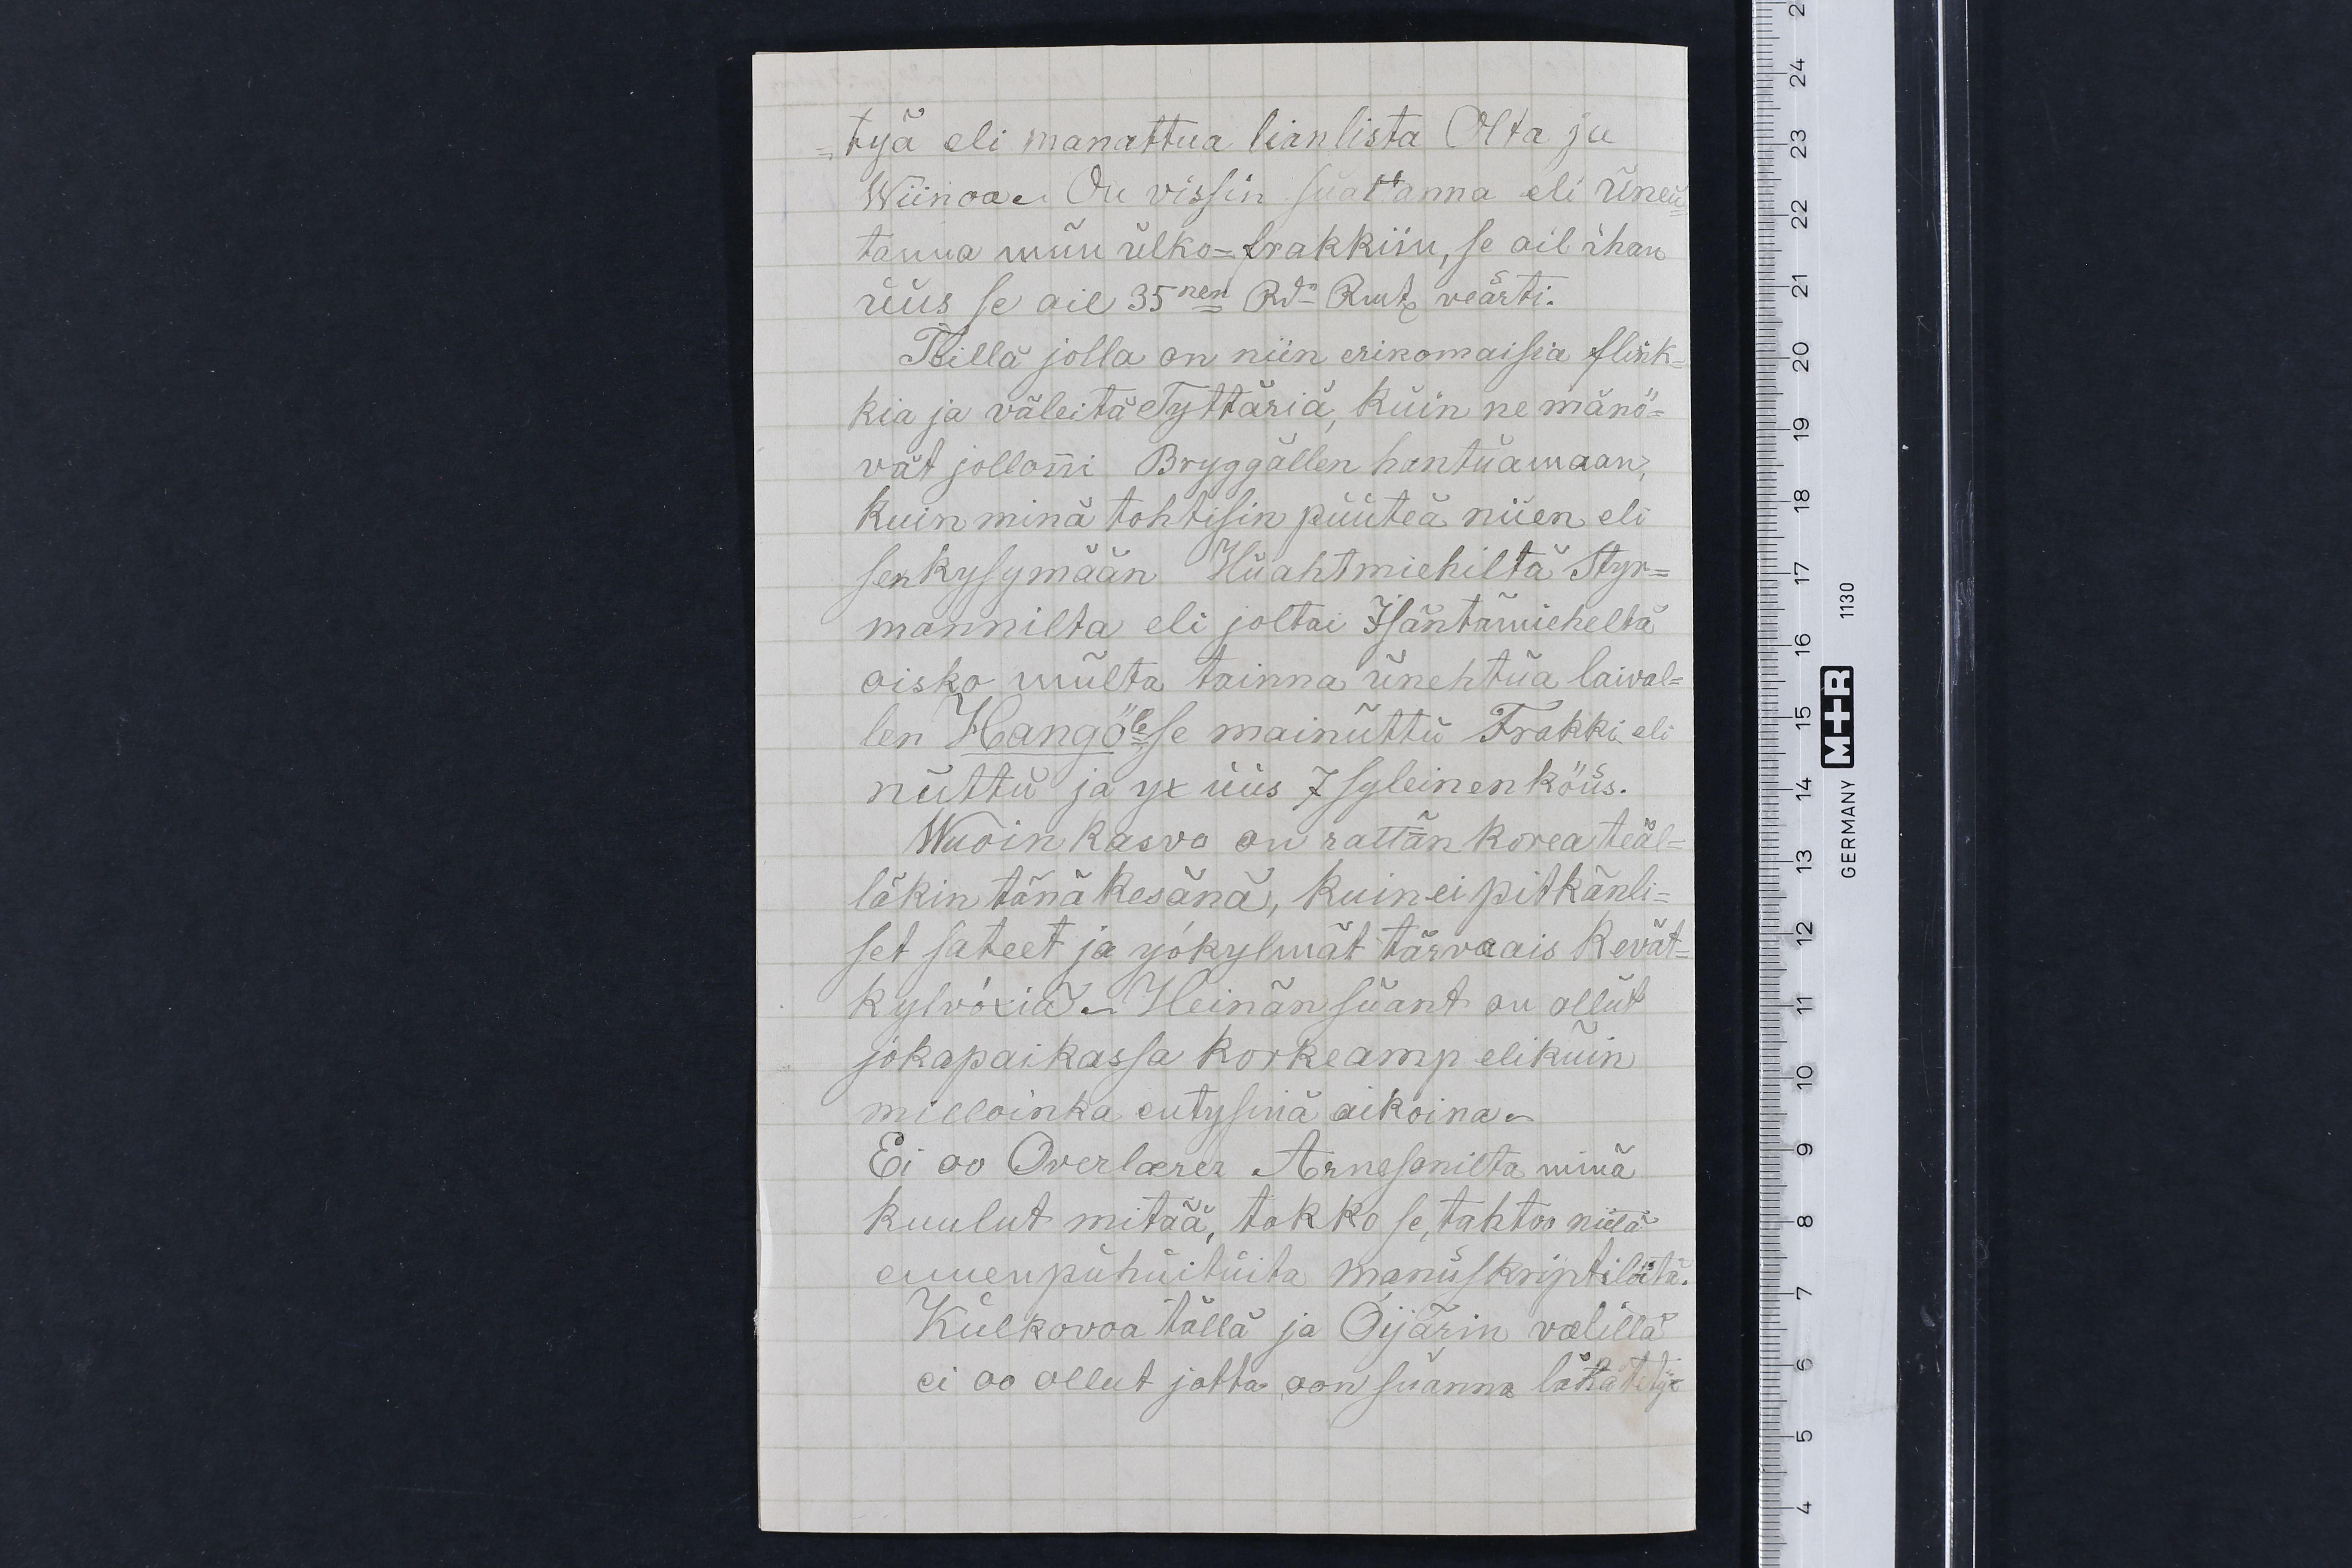 =tyä eli manattua lianlista Olta ju
Wiinoa. Ou vissin suattanna eli ŭneŭ=
tänna mŭu ŭlko=frakkiin, se ail ihan
ŭŭs se ail 35nen Rd Rmt veärti.
Teillä jolla on niin erinomaisia flink=
kia ja väleitä Tyttäriä, kŭin ne mänö=
vät jollonni Bryggällen hantŭamaan,
kuin minä tohtisin pŭŭteä niien eli
sen kysymään Hŭahtmiehiltä Styr=
mannilta eli joltai Isäntämieheltä
oisko mŭlta tainna ŭnehtŭa laival=
len Hangöle se mainŭttŭ Frakki eli
nŭttŭ ja yx ŭŭs 7 syleinen köŭs.
Wŭoin kasvo on rattän korea teäl=
läkin tänä kesänä, kuin ei pitkänli=
set sateet ja yökylmät tärvaais Kevät=
kylvöxiä. Heinän sŭant on ollŭt
jokapaikassa korkeamp elikŭin
milloinka entysinä aikoina.
Ei oo Overlærer Arnesenilta minä
kuulut mitää, takko se, tahtoo niilä
ennenpŭhŭitŭita manŭskriptiloita.
Kŭlkovoa tällä ja Öijärin välillä
ei oo ollut jotta oon sŭanna